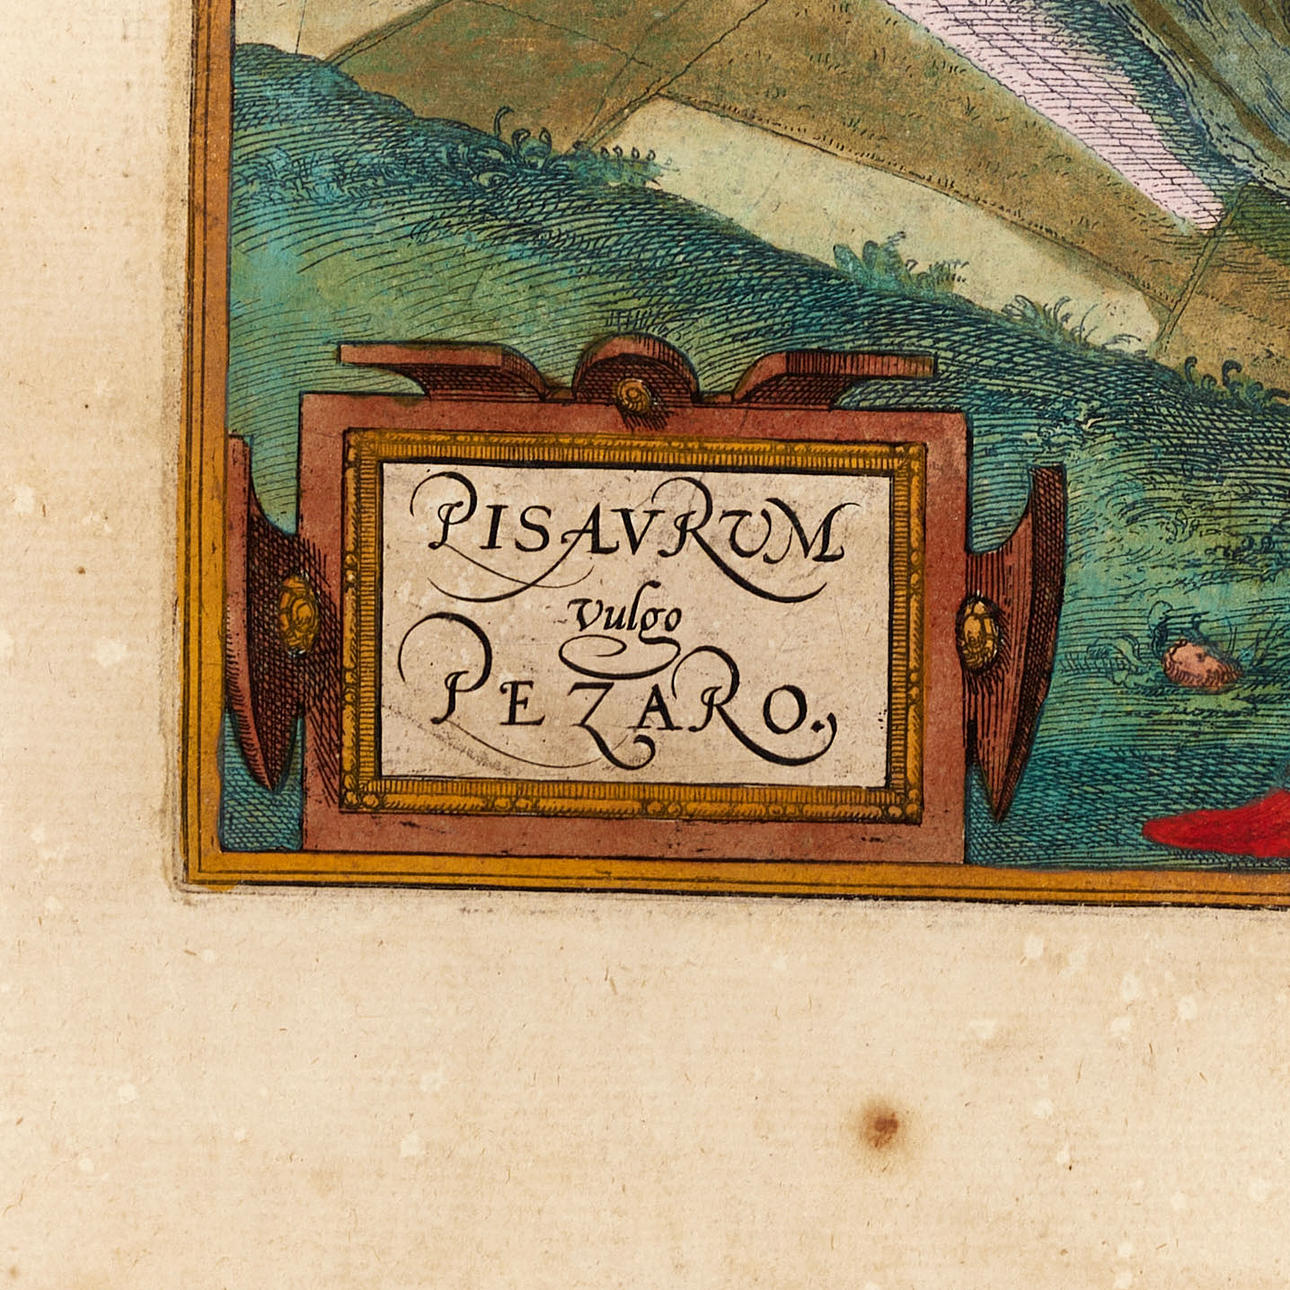 PISAVRVM
vulgo
PEZARO.